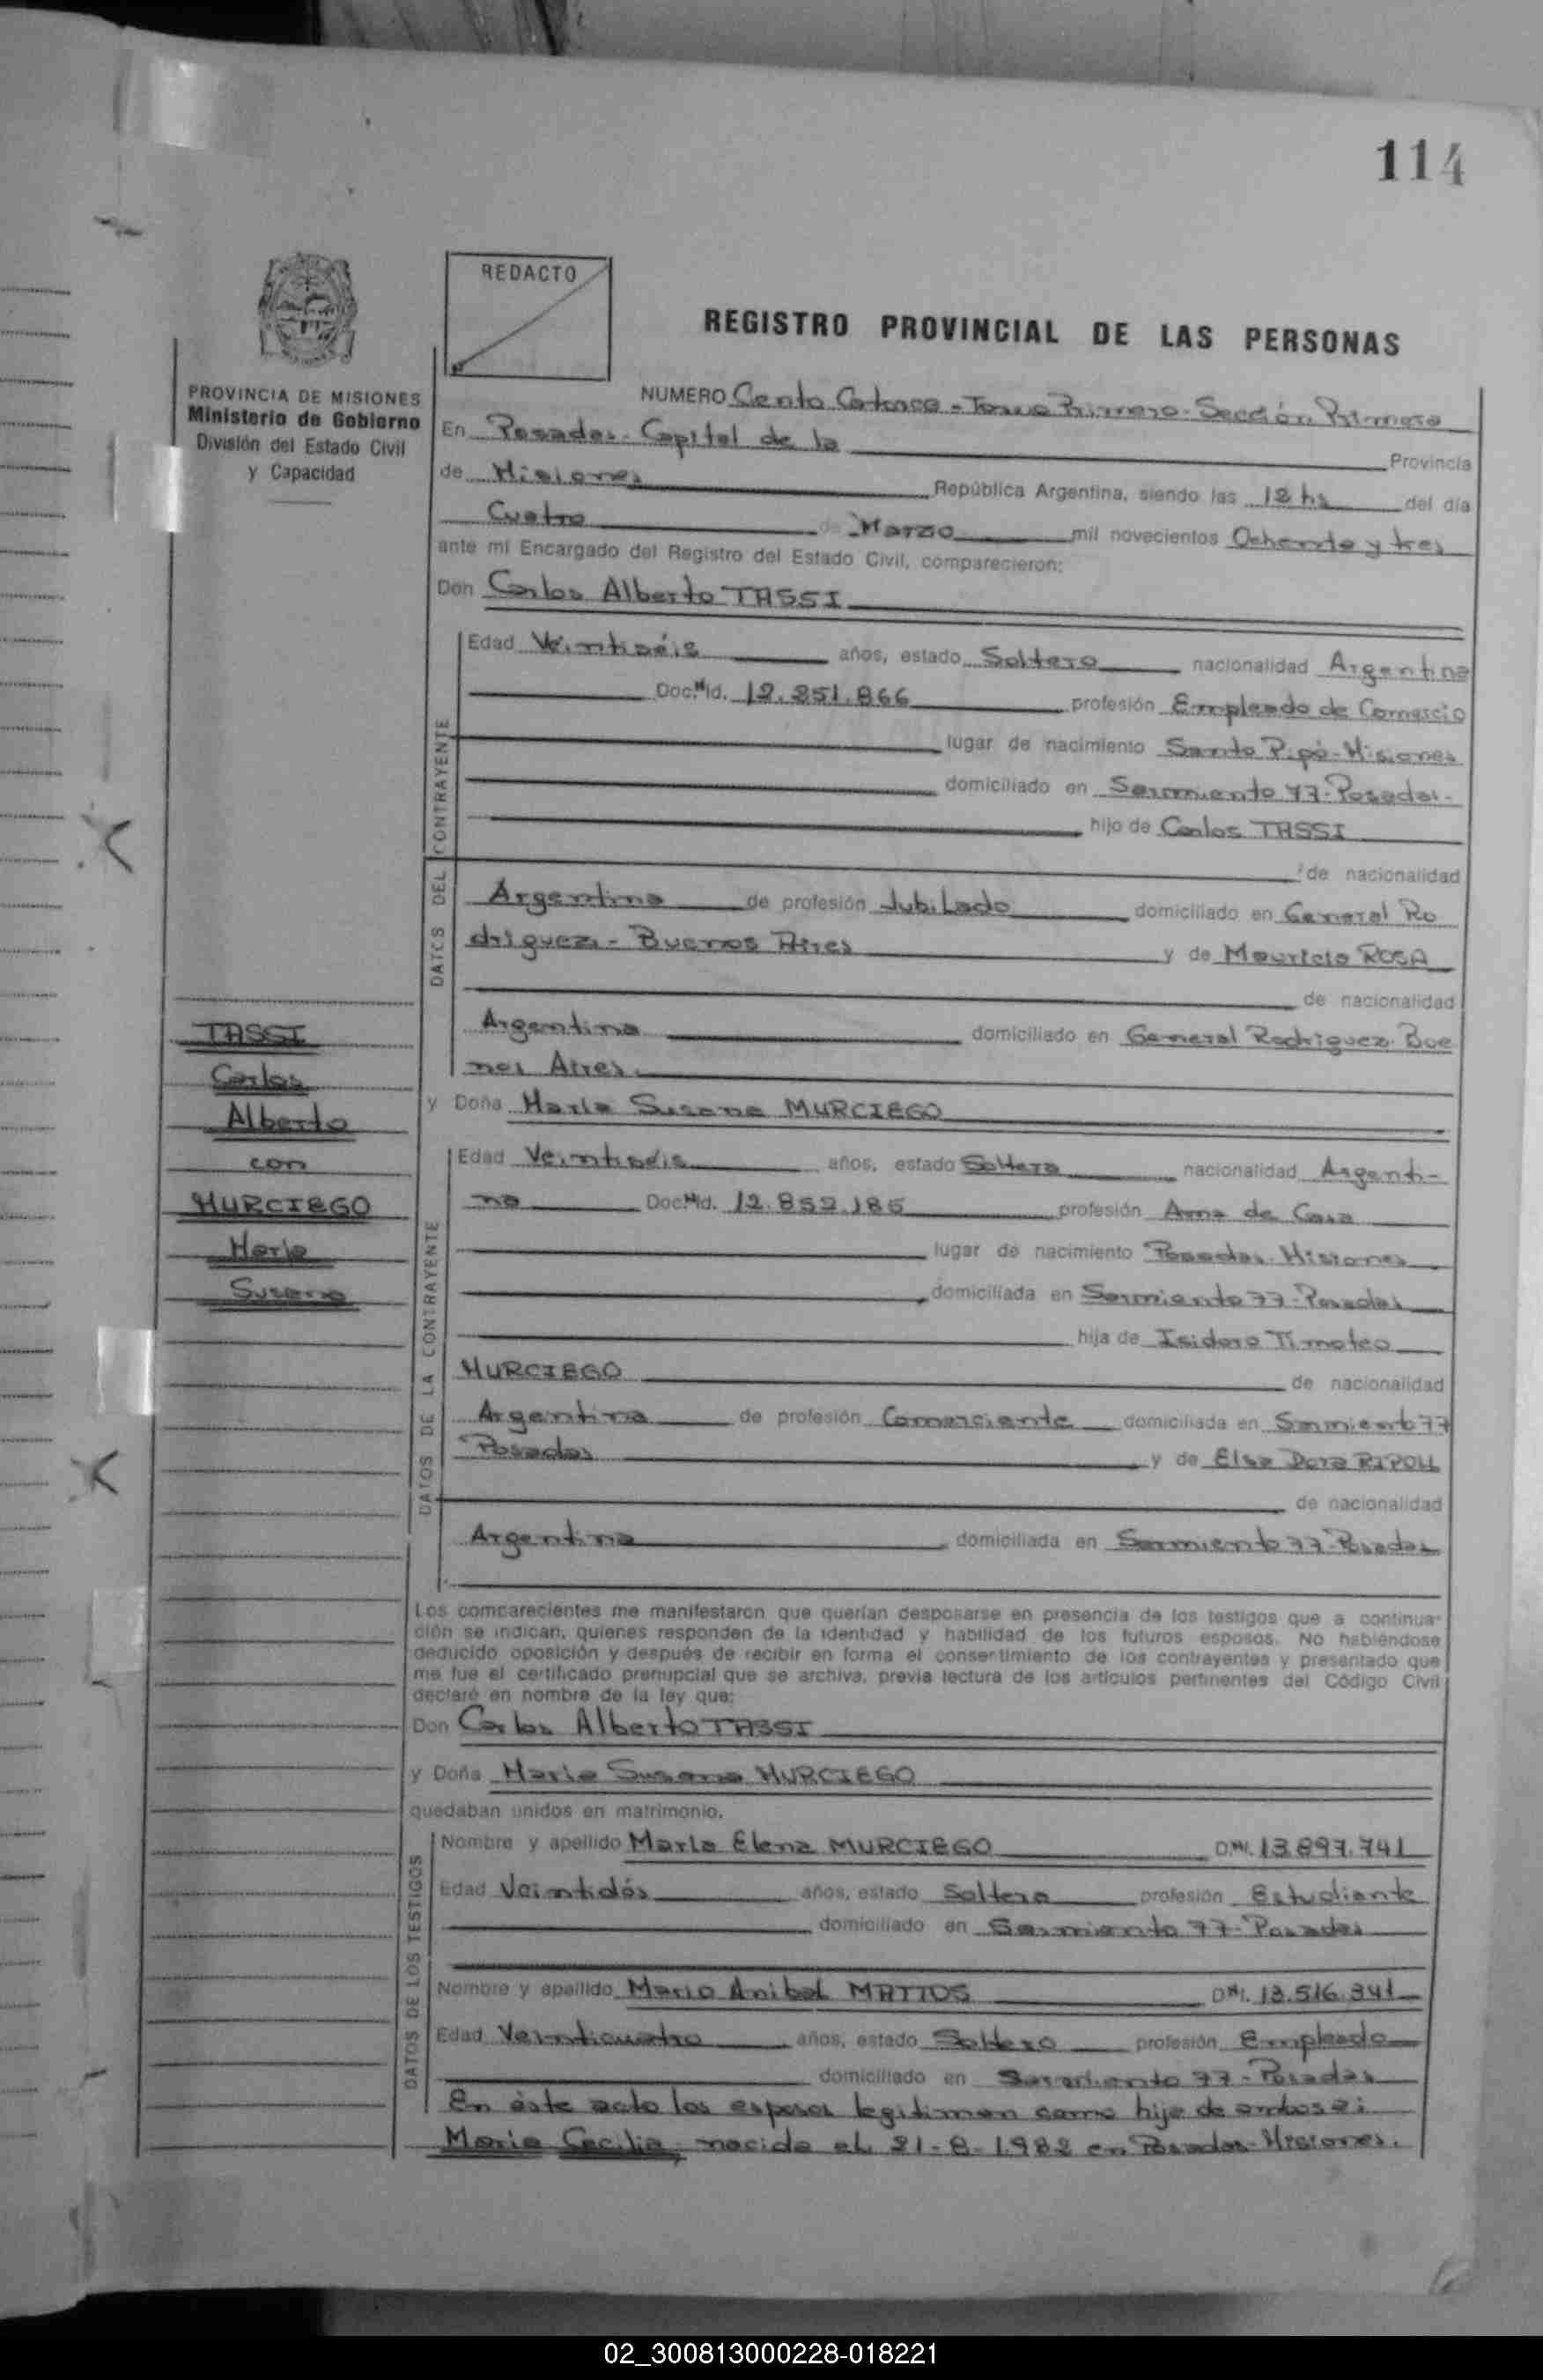 114
REDACTO
REGISTRO PROVINCIAL DE LAS PERSONAS
PROVINCIA DE MISIONES
Ministerio de Gobierno
División del Estado Civil
y Capacidad
NUMERO Ciento Catorce - Tomo Primero - Sección Primera
En Posadas - Capital de la Provincia
de Misiones República Argentina, siendo las 12 hs del día
Cuatro de Marzo mil novecientos Ochenta y tres
ante mi Encargado del Registro del Estado Civil, comparecieron:
Don Carlos Alberto TASSI
DATOS DEL CONTRAYENTE
Edad Veintiséis años, estado Soltero nacionalidad Argentina
Doc. N. Id. profesión Empleado de Comercio
lugar de nacimiento Santo Pipó - Misiones
domiciliado en Sarmiento 77 - Posadas -
hijo de Carlos TASSI
de nacionalidad
Argentina de profesión Jubilado domiciliado en General Ro
driguez - Buenos Aires y de Mauricia ROSA
de nacionalidad
Argentina domiciliado en General Rodriguez Bue
nos Aires
TASSI
Carlos
Alberto
con
MURCIEGO
Maria
Susana
y Doña Maria Susana MURCIEGO
DATOS DE LA CONTRAYENTE
Edad Veintiséis años, estado Soltera nacionalidad Argenti-
na Doc. N. Id. profesión Ama de Casa
lugar de nacimiento Posadas - Misiones
domiciliada en Sarmiento 77 - Posadas
hija de Isidoro Timoteo
MURCIEGO de nacionalidad
Argentina de profesión Comerciante domiciliada en Sarmiento 77
Posadas y de Elsa Dora RIPOLL
de nacionalidad
Argentina domiciliada en Sarmiento 77 - Posadas
Los comparecientes me manifestaron que querían desposarse en presencia de los testigos que a continua-
ción se indican, quienes responden de la identidad y habilidad de los futuros esposos. No habiéndose
deducido oposición y después de recibir en forma el consentimiento de los contrayentes y presentado que
me fue el certificado prenupcial que se archiva, previa lectura de los artículos pertinentes del Código Civil
declaré en nombre de la ley que:
Don Carlos Alberto TASSI
y Doña Maria Susana MURCIEGO
quedaban unidos en matrimonio.
DATOS DE LOS TESTIGOS
Nombre y apellido Maria Elena MURCIEGO D.N.I. 13.897.741
Edad Veintidós años, estado Soltera profesión Estudiante
domiciliado en Sarmiento 77 - Posadas
Nombre y apellido Mario Anibal MATTOS D.N.I. 13.516.341
Edad Veinticuatro años, estado Soltero profesión Empleado
domiciliado en Sarmiento 77 - Posadas
En éste acto los esposos legitiman como hija de ambos a:
Maria Cecilia, nacida el 21-8-1982 en Posadas - Misiones.
02_300813000228-018221